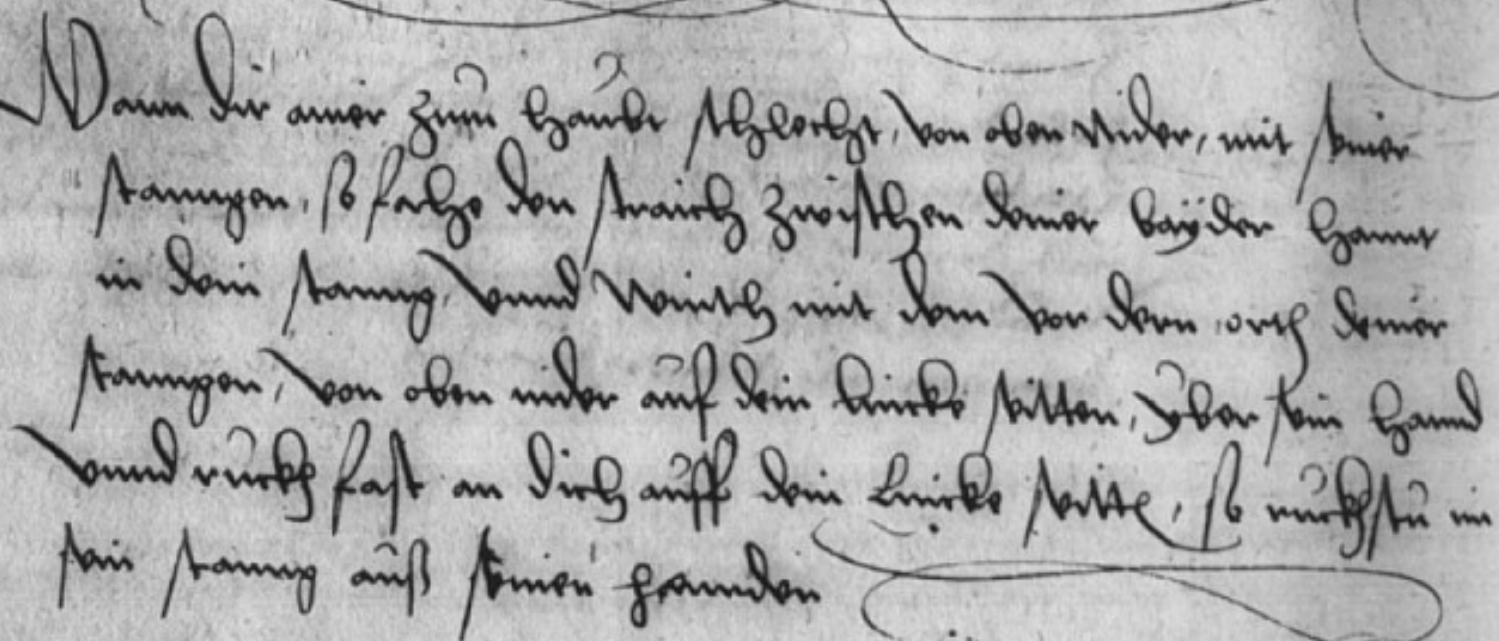 Wann dir ainer zum haubt schlecht, von oben Nider, mit seiner
stanngen, so fach den straich zwischen deiner bayder hannt
in dein stanng, Vnnd Winth mit dem vordern orth deiner
stanngen, von oben nider auf dein lincke seitten, yber sein hannd
vnnd ruckh fast an dich auff dein Lincke seitte, so ruckhstu im
sein stanng auß seinen hennden